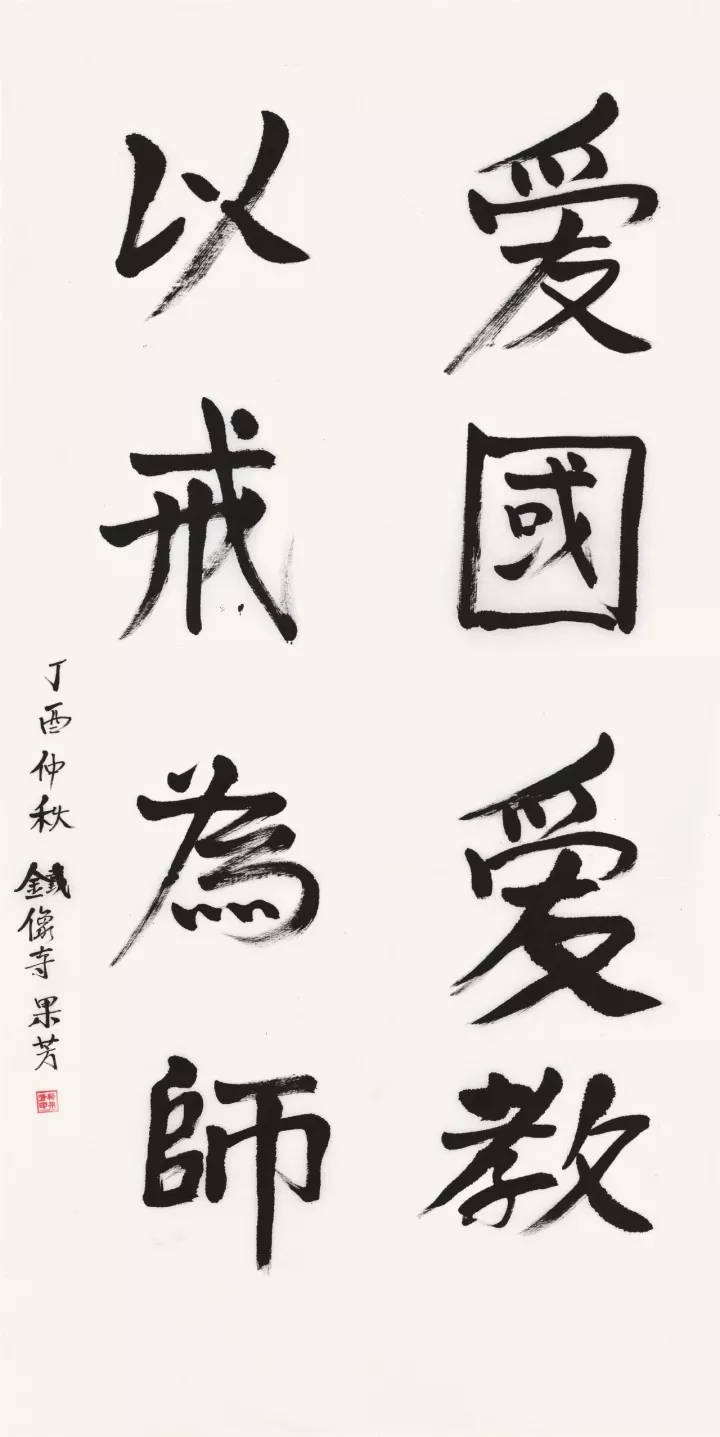 愛國愛教
以戒為師
丁酉仲秋 鐵像寺 果芳